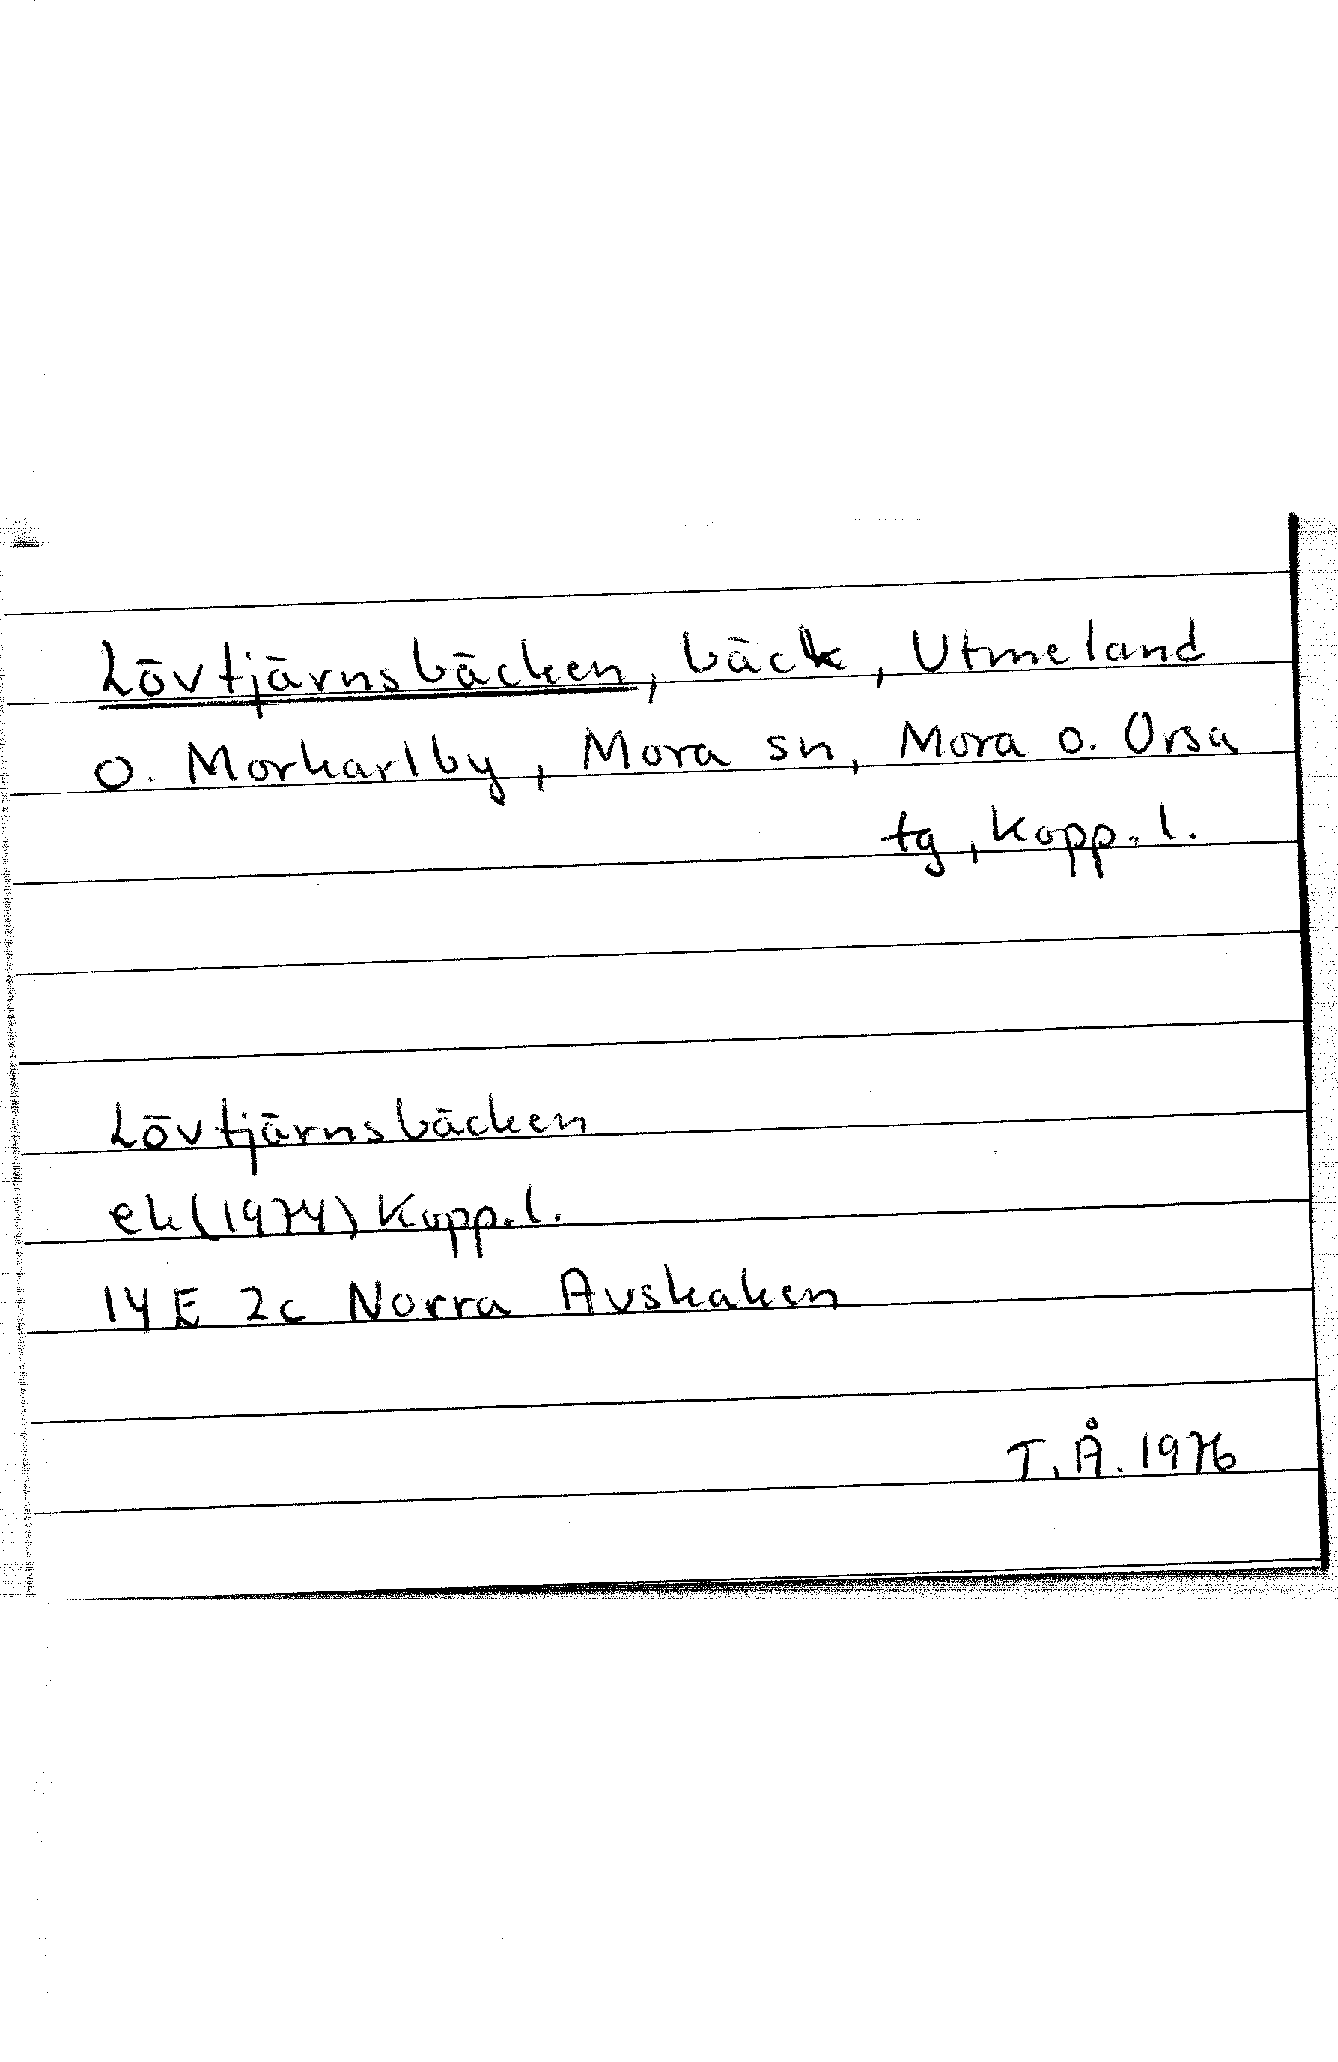 Lövtjärnsbäcken, bäck, Utmeland
o. Morkarlby, Mora sn, Mora o. Orsa
tg, Kopp. l.
Lövtjärnsbäcken
ek (1974) Kopp. l.
14 E 2c Norra Avskaken
T. Å. 1976